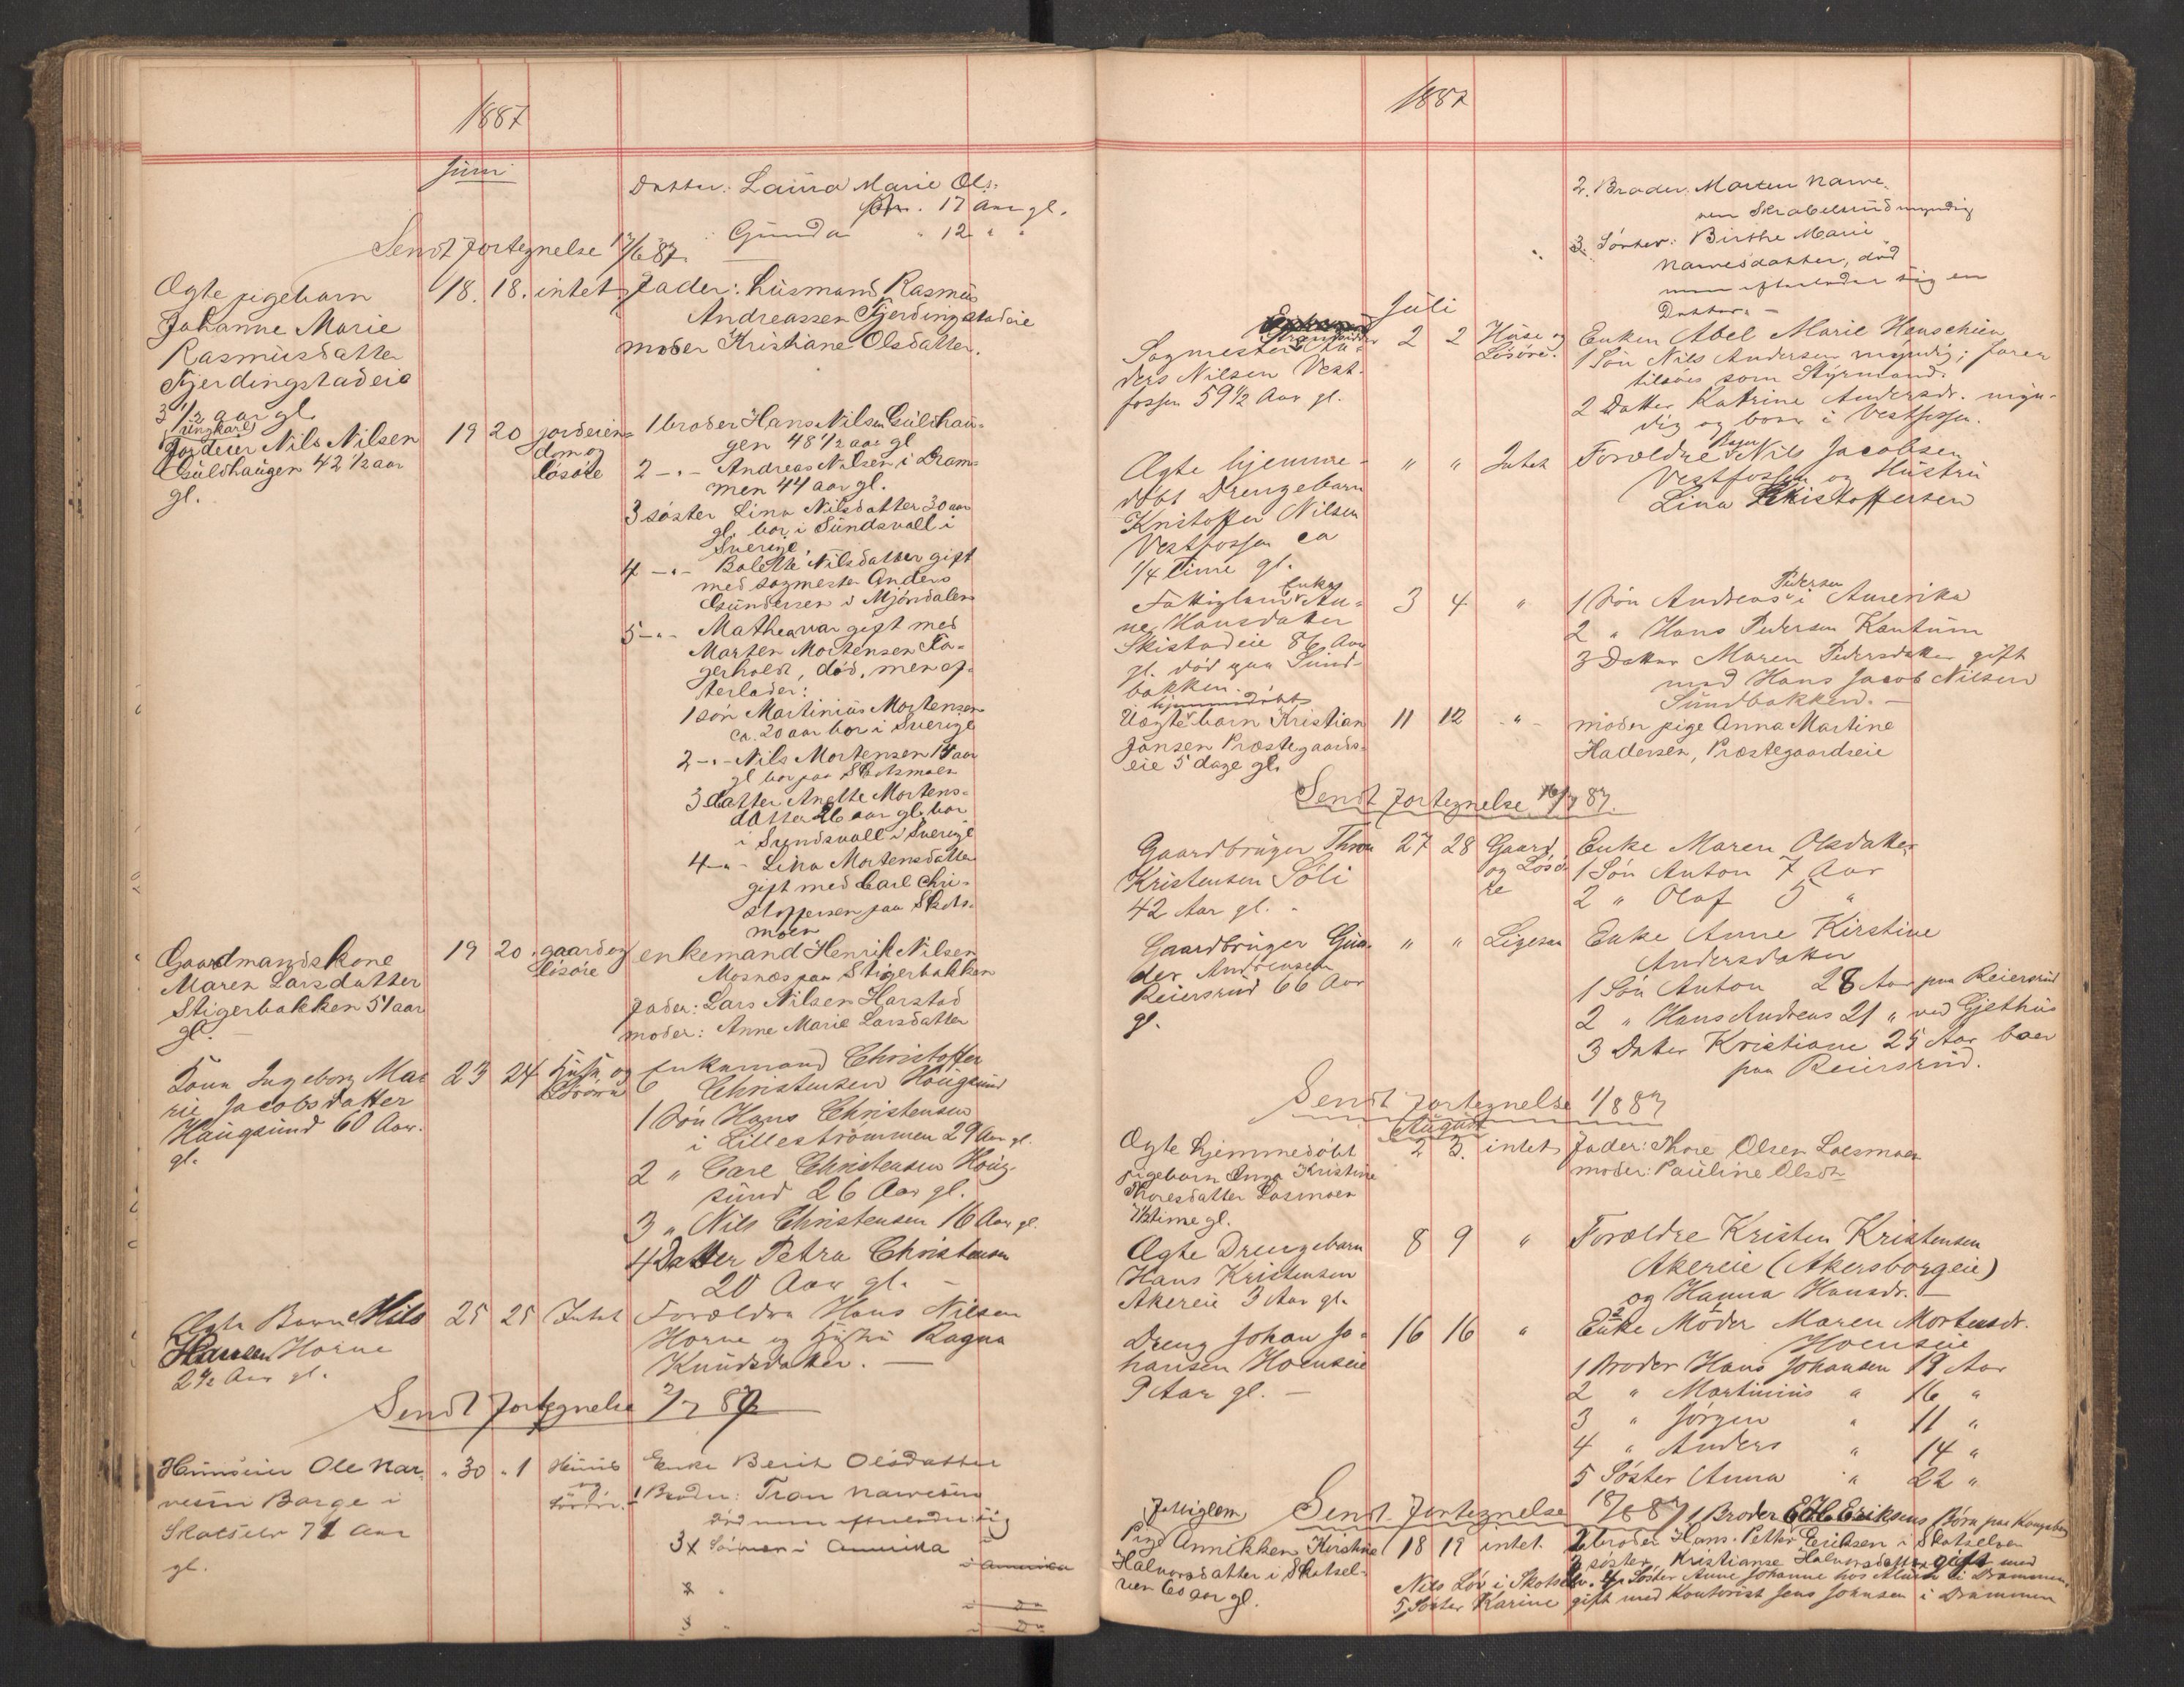 1887
Juni
Datter: Laura Marie Ols-
datr. 17 Aar gl.
" Gunda " 12 " "
Sendt fortegnelse 17/6 87.
Ægte pigebarn 18. 18. intet Fader: husmand Rasmus
Johanne Marie Andreassen Gjerdingstadeie
Rasmusdatter moder Kristiane Olsdatter.
Gjerdingstadeie
3 1/2 aar gl.
ungkarl
Jordeier Nils Nilsen 19 20 jordeien- 1 broder Hans Nilsen Guldhau-
Guldhaugen 42 1/2 aar dom og gen 48 1/2 aar gl
gl. løsøre 2 -"- Andreas Nilsen i Dram-
men 44 aar gl.
3 søster Lina Nilsdatter 30 aar
gl. bor i Sundsvall i
Sverige.
4 -"- Bolette Nilsdatter gift
med sagmester Anders
Gundersen i Mjøndalen
5 -"- Mathea var gift med
Morten Mortensen Fa-
gerholdt, død, men ef-
terlader:
1 søn Martinius Mortensen
ca. 20 aar bor i Sverige
2 -"- Nils Mortensen 15 aar
gl bor paa Skotsmoen
3 datter Anette Mortens-
datter 26 aar gl. bor
i Sundsvall i Sverige
4 -"- Lina Mortensdatter
gift med Carl Chri-
stoffersen paa Skots-
moen
Gaardmandskone 19 20. gaard og enkemand Henrik Nilsen
Maren Larsdatter løsøre Mosnæs paa Stigerbakken
Stigerbakken 51 aar Fader: Lars Nilsen Harstad
gl. moder: Anne Marie Larsdatter
Kone Ingeborg Ma- 23 24 Huse og Enkemand Christoffer
rie Jacobsdatter Løsøre Christensen Hougsund
Haugsund 60 Aar. 1 Søn Hans Christensen
gl. i Lillestrømmen 29 Aar gl.
2 " Carl Christensen Houg-
sund 26 Aar gl.
3 " Nils Christensen 16 Aar gl.
4 Datter Petra Christensen
20 Aar gl. -
Ægte Barn Nils 25 25 Intet Forældre Hans Nilsen
Hansen Horne Horne og Hustru Ragna
2 1/2 Aar gl. Knudsdatter. -
Sendt fortegnelse 2/7 87
Huuseier Ole Nar- " 30 " 1 Huus Enke Berit Olsdatter
vesen Borge i og 1 Broder: Tron Narvesen
Skotselv 71 Aar Løsøre. død men efterlader sig
gl. 3 Sønner i Amerika
i Amerika
1887
2. Broder. Morten Narve-
sen Skrabelsrud myndig
3. Søster: Birthe Marie
Narvesdatter, død
men efterlader sig en
Datter. -
Juli
Sagmester An- 2 2 Huse og Enken Abel Marie Henschien
ders Nilsen Vest- Løsøre. 1 Søn Nils Andersen myndig; farer
fossen 59 1/2 Aar gl. tilsøes som Styrmand.
2 Datter Katrine Andersdr. myn-
dig og boer i Vestfossen.
Ægte hjemme- " " Intet Forældre Nils Jacobsen
døbt Drengebarn Vestfossen og Hustru
Kristoffer Nilsen Lina Kristoffersen
Vestfossen ca
1/4 Time gl.
Enke
Fattiglem An- 3 4 " 1 Søn Andreas Pedersen i Amerika
ne Hansdatter 2 " Hans Pedersen Kantum
Skistadeie 86 Aar 3 Datter Maren Pedersdatter gift
gl. død paa Sund- med Hans Jacob Nilsen
bakken. Sundbakken. -
hjemmedøbt
Uægte barn Kristian 11 12 - " - moder pige Anna Martine
Jansen Præstegaards- Hadersen, Præstegaardseie
eie 5 dage gl.
Sendt fortegnelse 16/7 87.
Gaardbruger Thron 27 28 Gaard Enke Maren Olsdatter
Kristensen Søli og Løsø- 1 Søn Anton 7 Aar
42 Aar gl. - re 2 " Olaf 5 "
Gaardbruger Gun- " " Ligesaa Enke Anne Kirstine
der Andreasen Andersdatter
Reiersrud 66 Aar 1 Søn Anton 28 Aar paa Reiersrud
gl. 2 " Hans Andreas 21 " ved Gjethus
3 Datter Kristiane 25 Aar boer
paa Reiersrud.
Sendt fortegnelse 1/8 87
August
Ægte hjemmedøbt 2 3. intet Fader: Thore Olsen Loesmoen
pigebarn Anna Kristine moder: Pauline Olsdr
Thoresdatter Loesmoen
1/2 time gl.
Ægte Drengebarn 8 9 " Forældre Kristen Kristensen
Hans Kristensen Akereie (Akersborgeie)
Akereie 3 Aar gl. og Hanna Hansdr. -
Dreng Johan Jo- 16 16 " Enke Moder Maren Mortensdr.
hansen Hoenseie Hoenseie
9 Aar gl. - 1 Broder Hans Johansen 19 Aar
2 " Martinius " 16 "
3 " Jørgen " 11 "
4 " Anders " 14 "
5 Søster Anna " 22 "
Sendt fortegnelse 18/8 87
Fattiglem 1 Broder Eriksens Børn paa Kongsberg
Pige Annikken Kirstine 18 19 intet. 2 broder Hans Petter Eriksen i Skotselven
Halvorsdatter i Skotsel- 3 søster, Kristianse Halvorsdatter gift med
ven 60 aar gl. Nils Løv i Skotselv. 4 Søster Anne Johanne hos i Drammen.
5 Søster Karine gift med Kontorist Jens Johnsen i Drammen